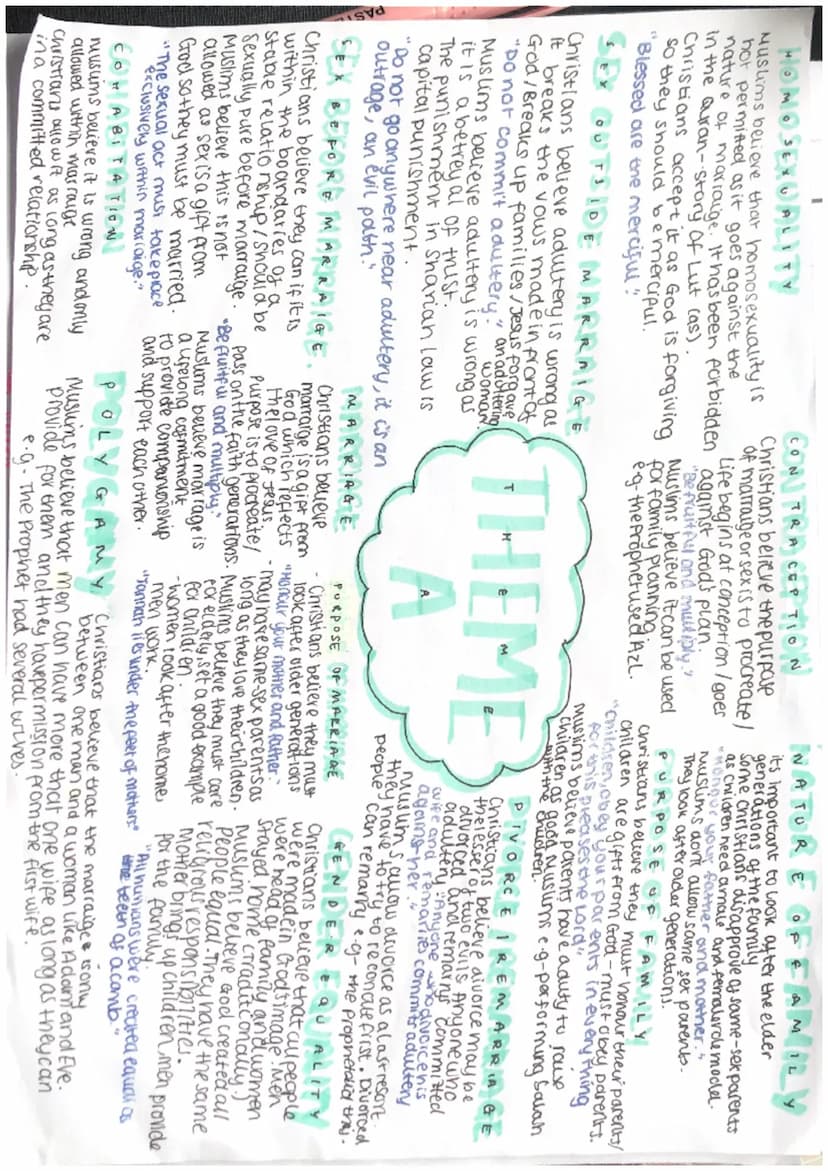 HOMOSEXUALITY
Muslims believe that homosexuality is
not permitted as it goes against the
nature of marraige. It has been forbidden
in the Quran - story of Lut (as).
Christians accept it as God is forgiving
so they should be merciful.
"Blessed are the merciful".
CONTRACEPTION
Christians believe the purpose
of marraige or sex is to procreate/
life begins at conception / goes
against God's plan.
"Be fruitful and multiply."
Muslims believe it can be used
for family planning
e.g. the Prophet used Azl.
NATURE OF FAMILY
its important to look after the elder
generations of the family
some Christians disapprove of same-sex parents
as children need a male and female role model.
"Honour your father and mother."
Muslims don't allow same sex parents.
They look after older generations.
PURPOSE OF FAMILY
Christians believe they must honour their parents/
children are gift from God - must obey parents.
"Children obey your parents in everything
for this pleases the Lord"
Muslims believe parents have a duty to raise
children as good Muslims e.g - performing Salah
with the children.
SEX OUTSIDE MARRAIGE
Christians believe adultery is wrong as
it breaks the vows made in front of
God / Breaks up families / Jesus forgave
an adultering woman
"Do not commit adultery."
Muslims believe adultery is wrong as
it is a betreyal of trust.
The punishment in Shariah Law is
capital punishment.
"Do not go anywhere near adultery, it is an
outrage, an evil path."
THEME
A
DIVORCE / REMARRAIGE
Christians believe divorce may be
the lesser of two evils. Anyone who
divorced and remarrys committed
adultery. "Anyone who divorces his
wife and remarries commits adultery
against her."
Muslims allow divorce as a last resort.
they have to try to reconcile first. Divorced
people can remarry e.g - the Prophet
SEX BEFORE MARRAIGE.
Christians believe they can if it is
within the boundaries of a
stable relationship / should be
sexually pure before marraige.
Muslims believe this is not
allowed as sex is a gift from
God so they must be married.
"The sexual act must take place
exclusively within marraige."
MARRIAGE
Christians believe
marraige is a gift from
God which reflects
the love of Jesus
Purpose is to procreate /
pass on the faith generations.
"Be fruitful and multiply."
Muslims believe marrage is
a lifelong comitment
to provide companionship
and support each other.
PURPOSE OF MARRIAGE
- Christians believe they must
look after older generations
"Honour your mother and father."
- may have same sex parents as
long as they love their children.
Muslims believe they must care
for elderly, set a good example
for children.
- women look after the home,
men work.
"Jannah lies under the feet of mothers"
GENDER EQUALITY
Christians believe that all people
were made in God's image. Men
were head of family and women
stayed home (traditionally)
Muslims believe God created all
people equal. They have the same
religious responsibilities.
Mother brings up children, men provide
for the family.
"All humans were created equal as
the teeth of a comb."
COHABITATION
Muslims believe it is wrong and only
allowed within marraige
Christians allow it as long as they are
in a committed relationship.
POLYGAMY
Christians believe that the marraige is only
between one man and a woman like Adam and Eve.
Muslims believe that men can have more that one wife as long as they can
provide for them and they have permission from the first wife.
e.g - The Prophet had several wives.